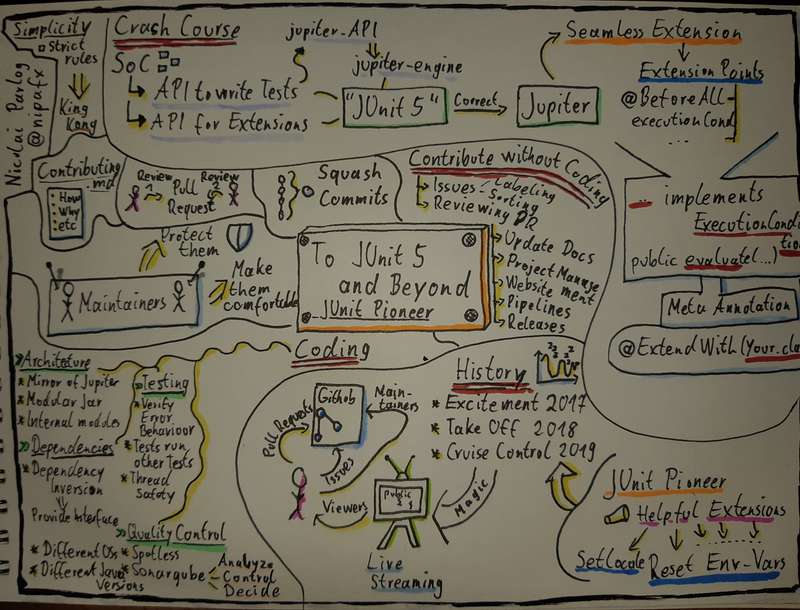 Simplicity
Strict
rules
King
Kong
Nicolai Parlog
@nipafx
Crash Course
SoC
API to write Tests
API for Extensions
jupiter-API
jupiter-engine
"JUnit 5"
Correct
Jupiter
Seamless Extension
Extension Points
@BeforeAll-
executionCond
...
... implements
ExecutionCondi
tion
public evaluate(...)
Meta Annotation
@ExtendWith(Your.cla
Contributing
.md
How
Why
etc
Review
1
Pull
Request
Review
2
Squash
Commits
Contribute without Coding
Issues - Labeling
Sorting
Reviewing PR
Update Docs
Project Manage
ment
Website
Pipelines
Releases
To JUnit 5
and Beyond
_JUnit Pioneer
Protect
them
Maintainers
Make
them
comfortable
Coding
Architeture
* Mirror of Jupiter
* Modular Jar
* Internal modules
Dependencies
* Dependency
Inversion
Provide Interface
Testing
* Verify
Error
Behaviour
* Tests run
other Tests
* Thread
Safety
Quality Control
* Different OSs
* Different Java
Versions
* Spotless
* Sonarqube
Analyze
Control
Decide
Github
Pull Requests
Issues
Main-
tainers
Viewers
public
Live
Streaming
Magic
History
* Excitement 2017
* Take Off 2018
* Cruise Control 2019
JUnit Pioneer
Helpful Extensions
SetLocale
Reset Env-Vars